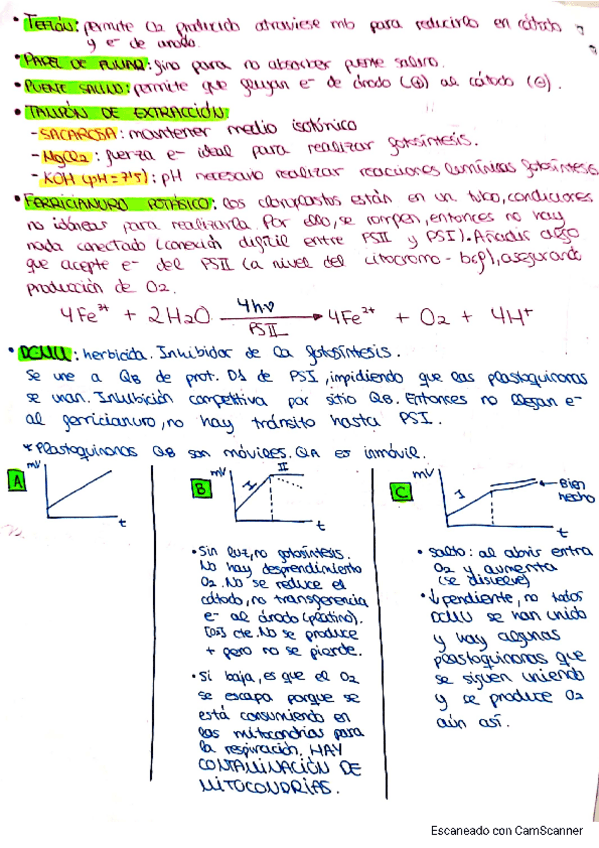 • TEFLÓN: permite O2 producido atraviese mb para reducirlo en cátodo
y e- de ánodo.
• PAPEL DE FUMAR: fino para no absorber puente salino.
• PUENTE SALINO: permite que fluyan e- de ánodo (⊕) al cátodo (⊖).
• TAMPÓN DE EXTRACCIÓN:
- SACAROSA: mantener medio isotónico
- MgCl2: fuerza e- ideal para realizar fotosíntesis.
- KOH (pH=7'5): pH necesario realizar reacciones lumínicas fotosíntesis
• FERRICIANURO POTÁSICO: los cloroplastos están en un tubo, condiciones
no idóneas para realizarla. Por ello, se rompen, entonces no hay
nada conectado (conexión difícil entre PSII y PSI). Añadir algo
que acepte e- del PSII (a nivel del citocromo - b6f), asegurando
producción de O2.
4Fe3+ + 2H2O 4hν PSII → 4Fe2+ + O2 + 4H+
• DCMU: herbicida. Inhibidor de la fotosíntesis.
Se une a QB de prot. D1 de PSI, impidiendo que las plastoquinonas
se unan. Inhibición competitiva por sitio QB. Entonces no llegan e-
al ferricianuro, no hay tránsito hasta PSI.
* Plastoquinonas QB son móviles. QA es inmóvil.
A
mV
t
B
mV
I
II
t
• Sin luz, no fotosíntesis.
No hay desprendimiento
O2. No se reduce el
cátodo, no transferencia
e- al ánodo (platino).
[O2] cte. No se produce
+ pero no se pierde.
• Si baja, es que el O2
se escapa porque se
está consumiendo en
las mitocondrias para
la respiración. HAY
CONTAMINACIÓN DE
MITOCONDRIAS.
C
mV
I
Bien
hecho
t
• salto: al abrir entra
O2 y aumenta
(se disuelve)
• ↓pendiente, no todos
DCMU se han unido
y hay algunas
plastoquinonas que
se siguen uniendo
y se produce O2
aún así.
Escaneado con CamScanner